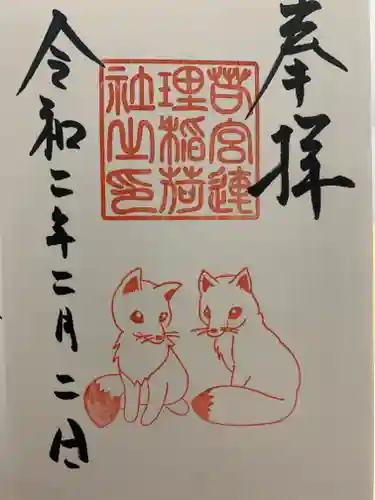 奉拝
苔宮連
理稲荷
社之印
令和二年二月二日